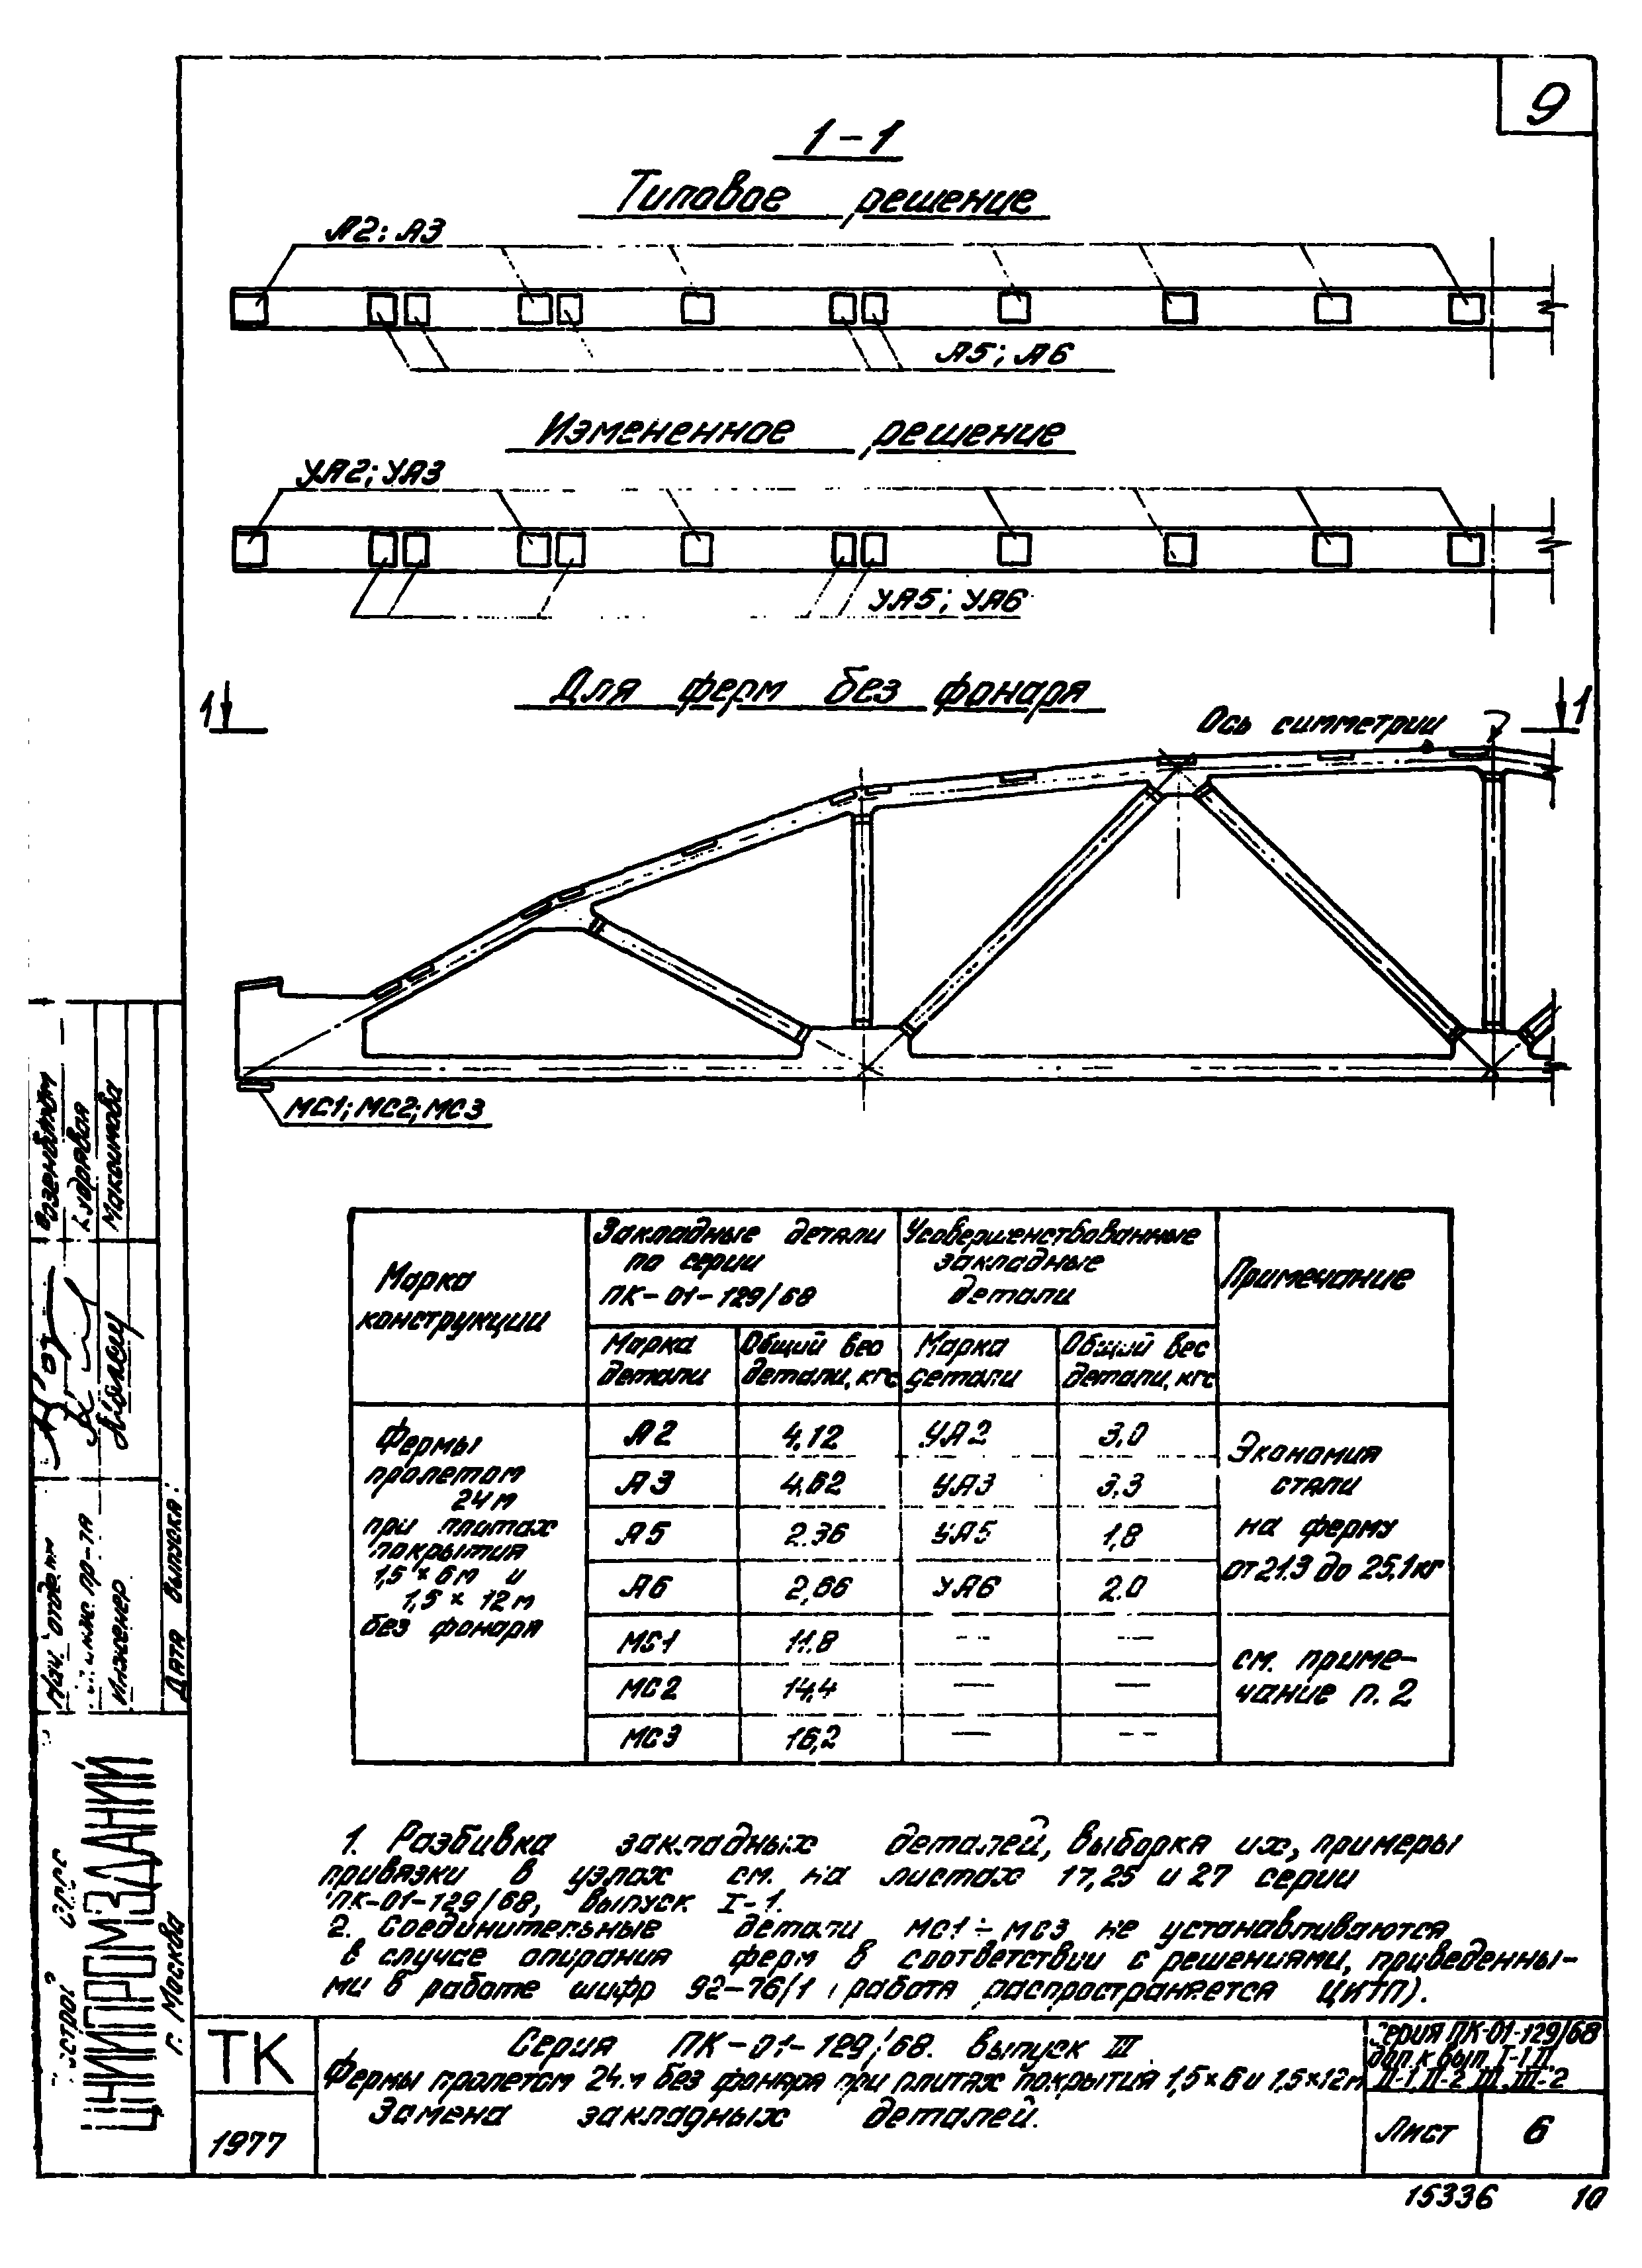 9
1-1
Типовое решение
А2; А3
А5; А6
Измененное решение
УА2; УА3
УА5; УА6
Для ферм без фонаря
1
1
Ось симметрии
МС1; МС2; МС3
Марка конструкции
Закладные детали по серии ПК-01-129/68
Усовершенствованные закладные детали
Примечание
Марка детали
Общий вес детали, кгс
Марка детали
Общий вес детали, кгс
Фермы
пролетом
24м
при плитах
покрытия
1,5×6м и
1,5×12м
без фонаря
А2 4,12 УА2 3,0
А3 4,62 УА3 3,3
А5 2.36 УА5 1,8
А6 2,66 УА6 2.0
МС1 11.8 — —
МС2 14,4 — —
МС3 16,2 — —
Экономия
стали
на ферму
от 21.3 до 25,1 кг
см. приме-
чание п. 2
1. Разбивка закладных деталей, выборка их, примеры
привязки в узлах см. на листах 17,25 и 27 серии
ПК-01-129/68, выпуск I-1.
2. Соединительные детали МС1÷МС3 не устанавливаются
в случае опирания ферм в соответствии с решениями, приведенны-
ми в работе шифр 92-76/1 (работа распространяется ЦИТП).
ТК
1977
Серия ПК-01-129/68. выпуск III.
Фермы пролетом 24м без фонаря при плитах покрытия 1,5×6 и 1,5×12м
Замена закладных деталей.
Серия ПК-01-129/68
доп. к вып. I-1, II,
II-1, II-2, III, III-2
Лист 6
15336 10
Кудрявая
Максимова
Нач. отдела
Инженер
Дата выпуска:
ЦНИИПРОМЗДАНИЙ
г. Москва